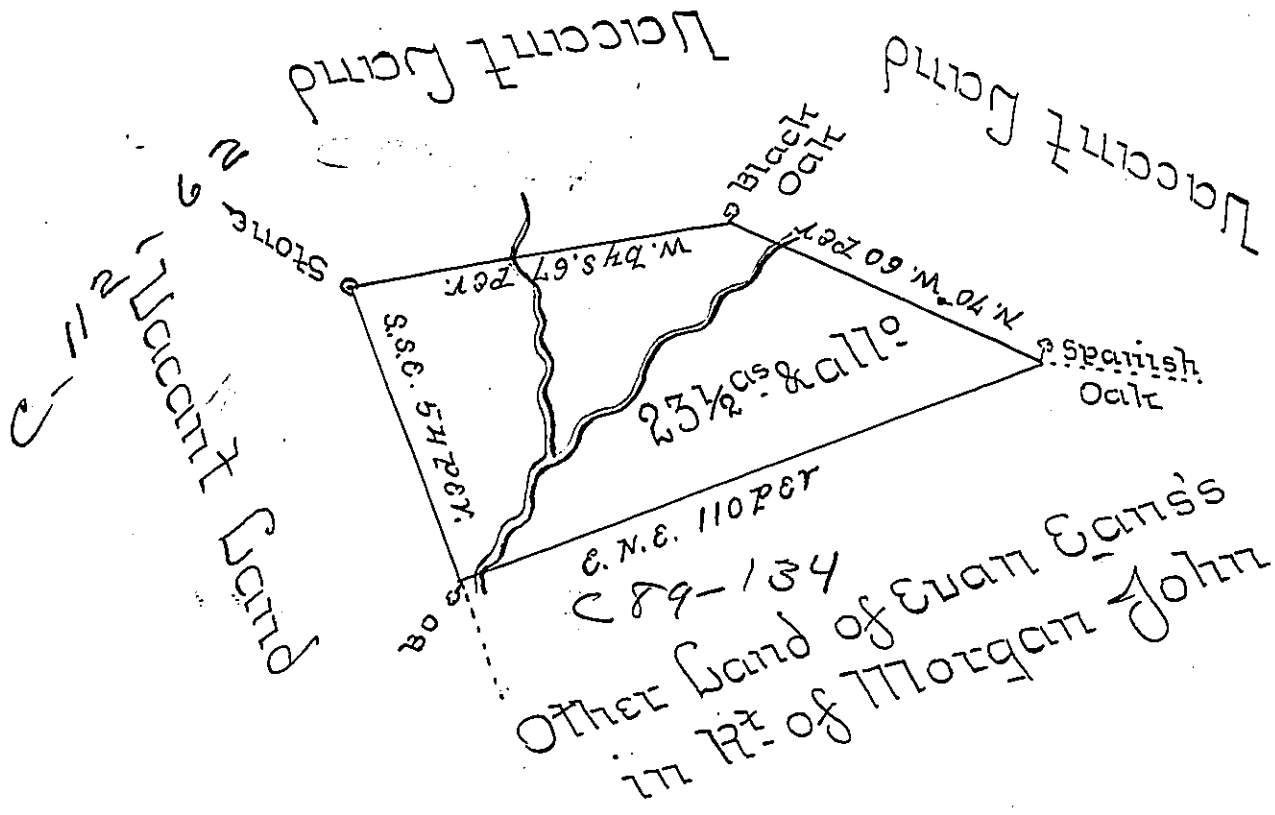 Vacant Land
Vacant Land
C-112-192
Vacant Land
Stone
Black
Oak
W. by S. 67 per.
N. 70° W. 60 per
S.S.E. 54 per.
Spanish
Oak
23½ as. & allo
E. N. E. 110 per
BO
C 89-134
Other Land of Evan Eans's
in Rt. of Morgan John